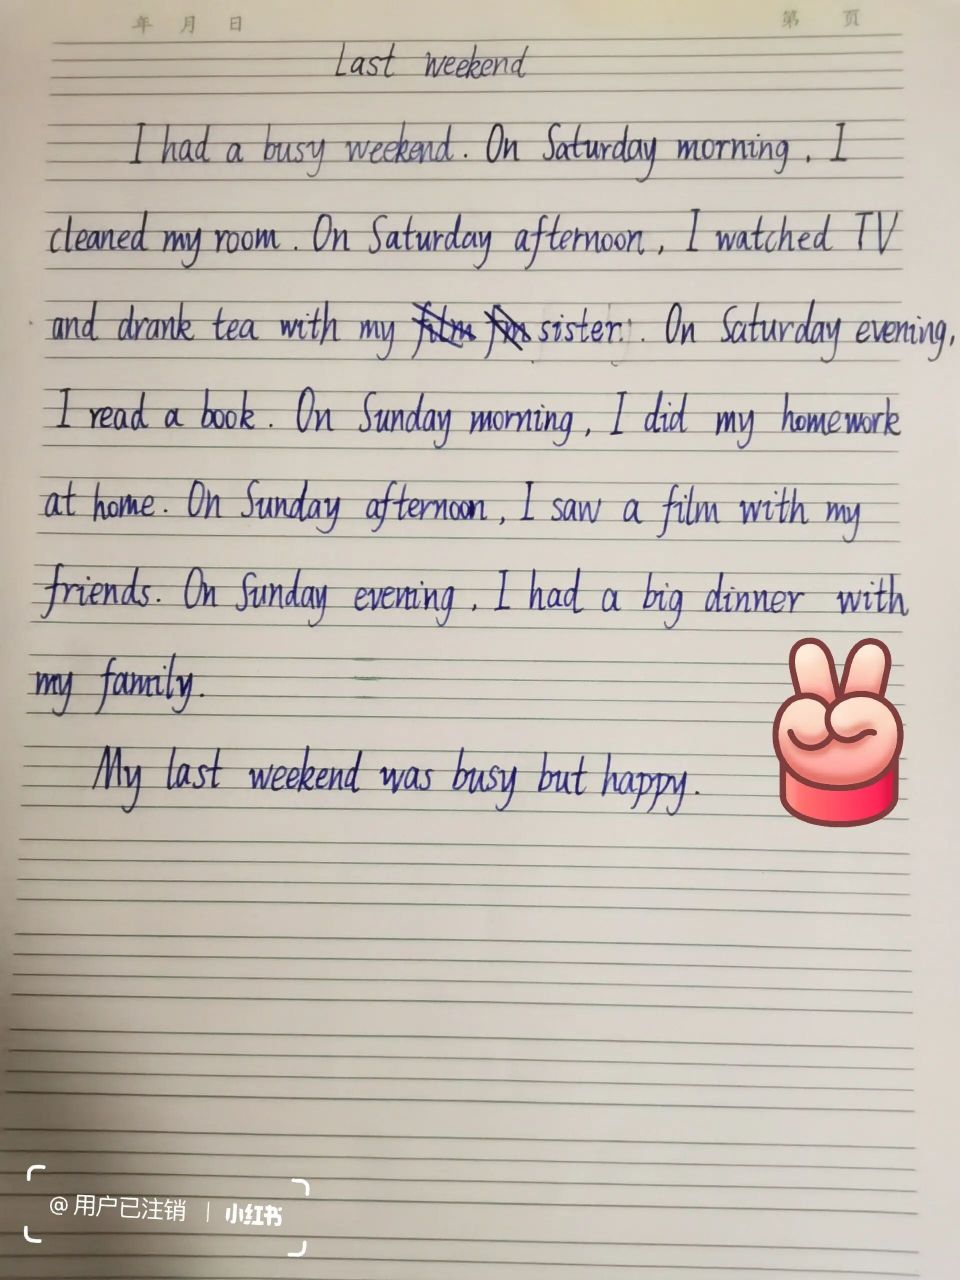 年 月 日 第 页
Last weekend
I had a busy weekend. On Saturday morning, I
cleaned my room. On Saturday afternoon, I watched TV
and drank tea with my sister. On Saturday evening,
I read a book. On Sunday morning, I did my homework
at home. On Sunday afternoon, I saw a film with my
friends. On Sunday evening, I had a big dinner with
my family.
My last weekend was busy but happy.
@用户已注销 | 小红书